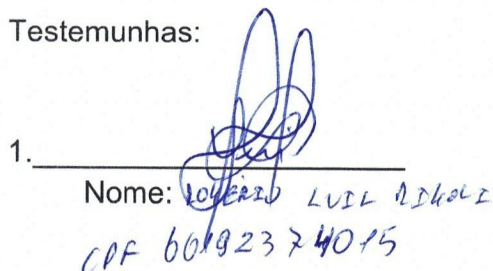 Testemunhas:
1.
Nome: ROGÉRIO LUIZ
CPF 60192374015